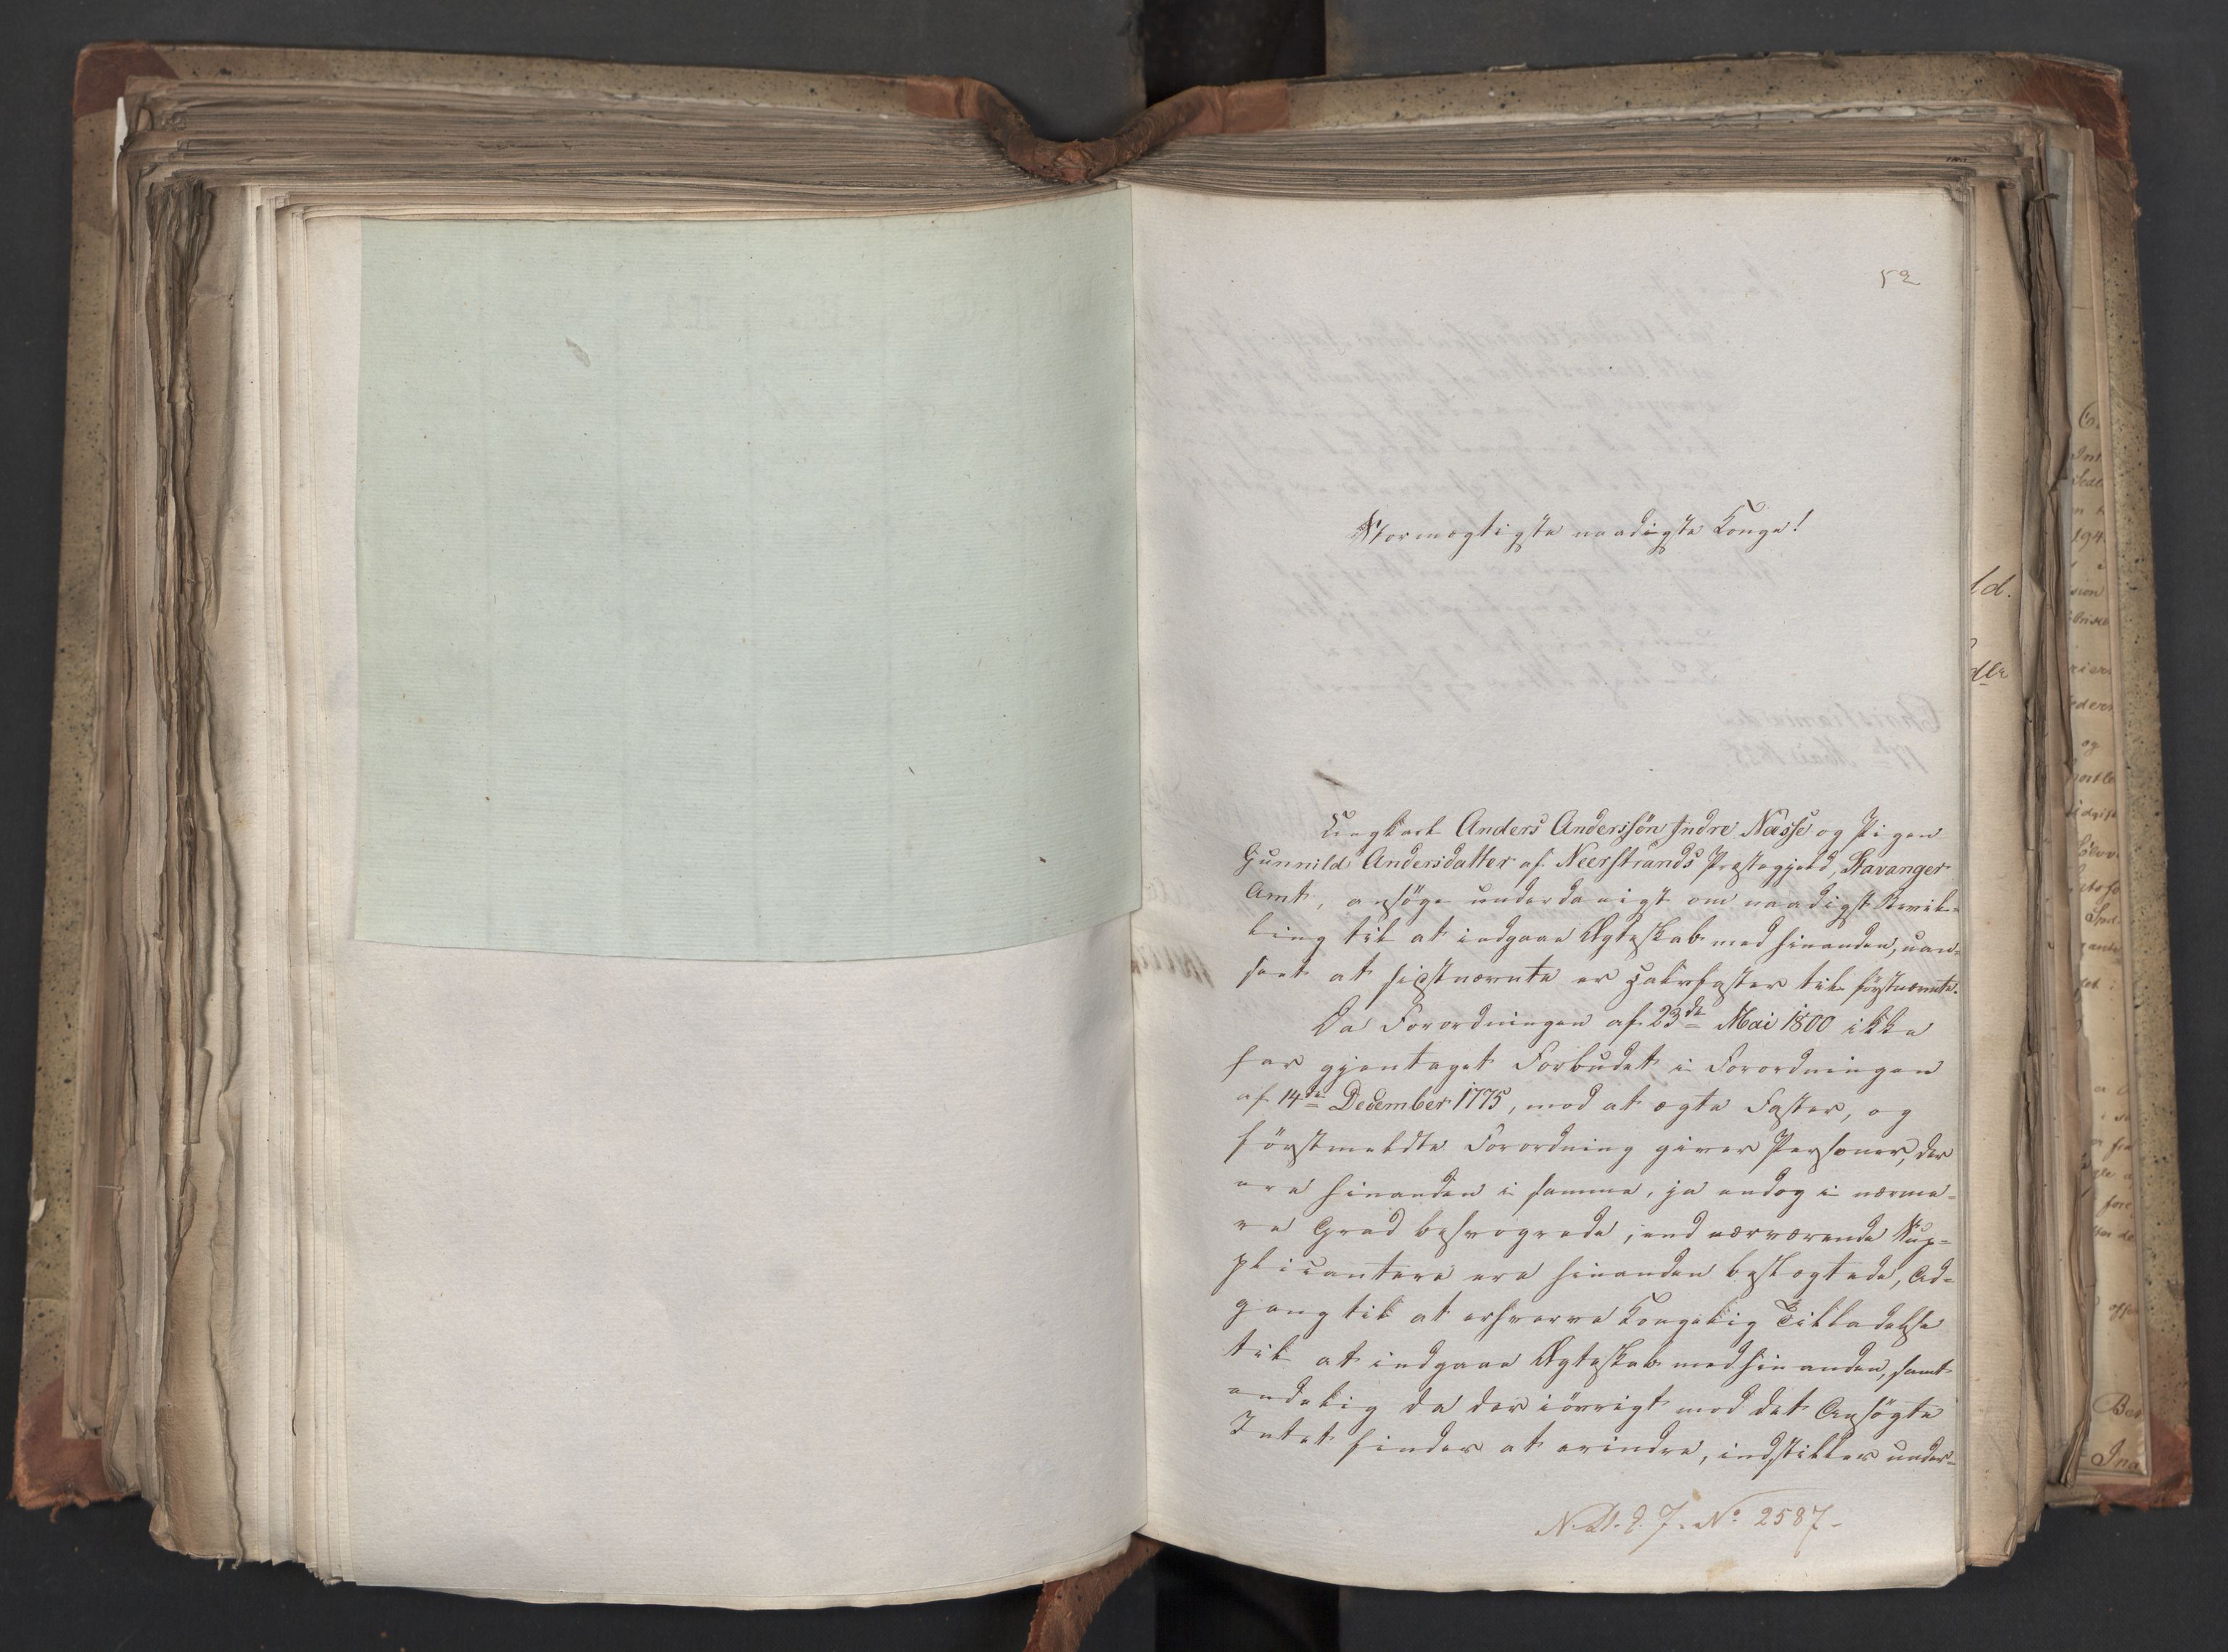 52
Stormægtigste naadigste Konge!
Ungkarl Anders Anderssön Indre Næsse og Pigen
Gunnild Andersdatter af Neerstrands Præstegjeld, Stavanger
Amt, ansöge underdanigst om naadigst Bevil-
ling til at indgaae Ægteskab med hinanden, uan-
seet at sidstnævnte er Halvfaster til förstnævnte.
Da Forordningen af 23de Mai 1800 ikke
har gjentaget Forbudet i Forordningen
af 14de December 1775, mod at ægte Faster, og
förstmeldte Forordning giver Personer, der
ere hinanden i samme, ja endog i nærme-
re Grad besvogrede, end nærværende Sup-
plicantere ere hinanden beslægtede, Ad-
gang til at erhverve Kongelig Tilladelse
til at indgaae Ægteskab med hinanden, samt
endelig da der iövrigt mod det Ansögte
Intet findes at erindre, indstilles under-
No 2587-
ld.